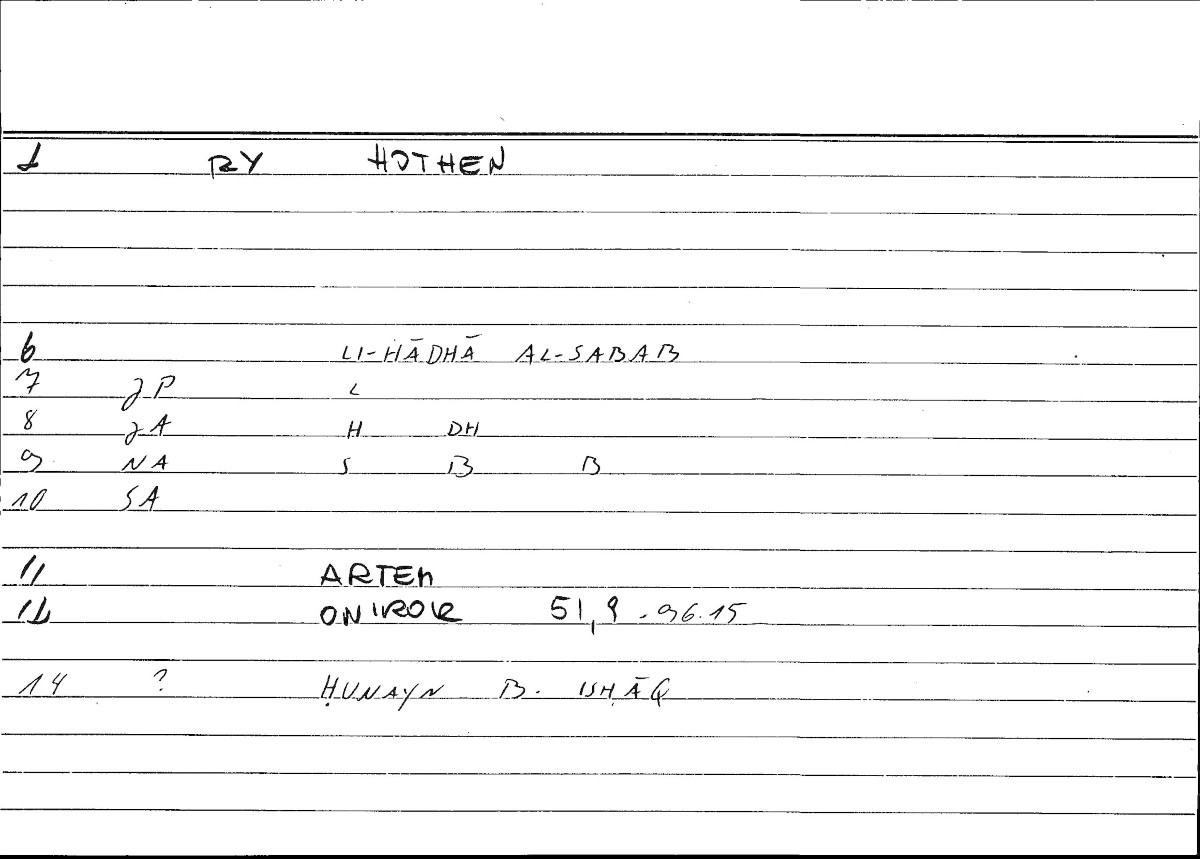 1 RY HOTHEN
6 LI-HĀDHĀ AL-SABAB
7 JP L
8 JA H DH
9 NA S B B
10 SA
11 ARTEM
12 ONIROK 51,9 - 96.15
14 ? ḤUNAYN B. ISḤĀQ